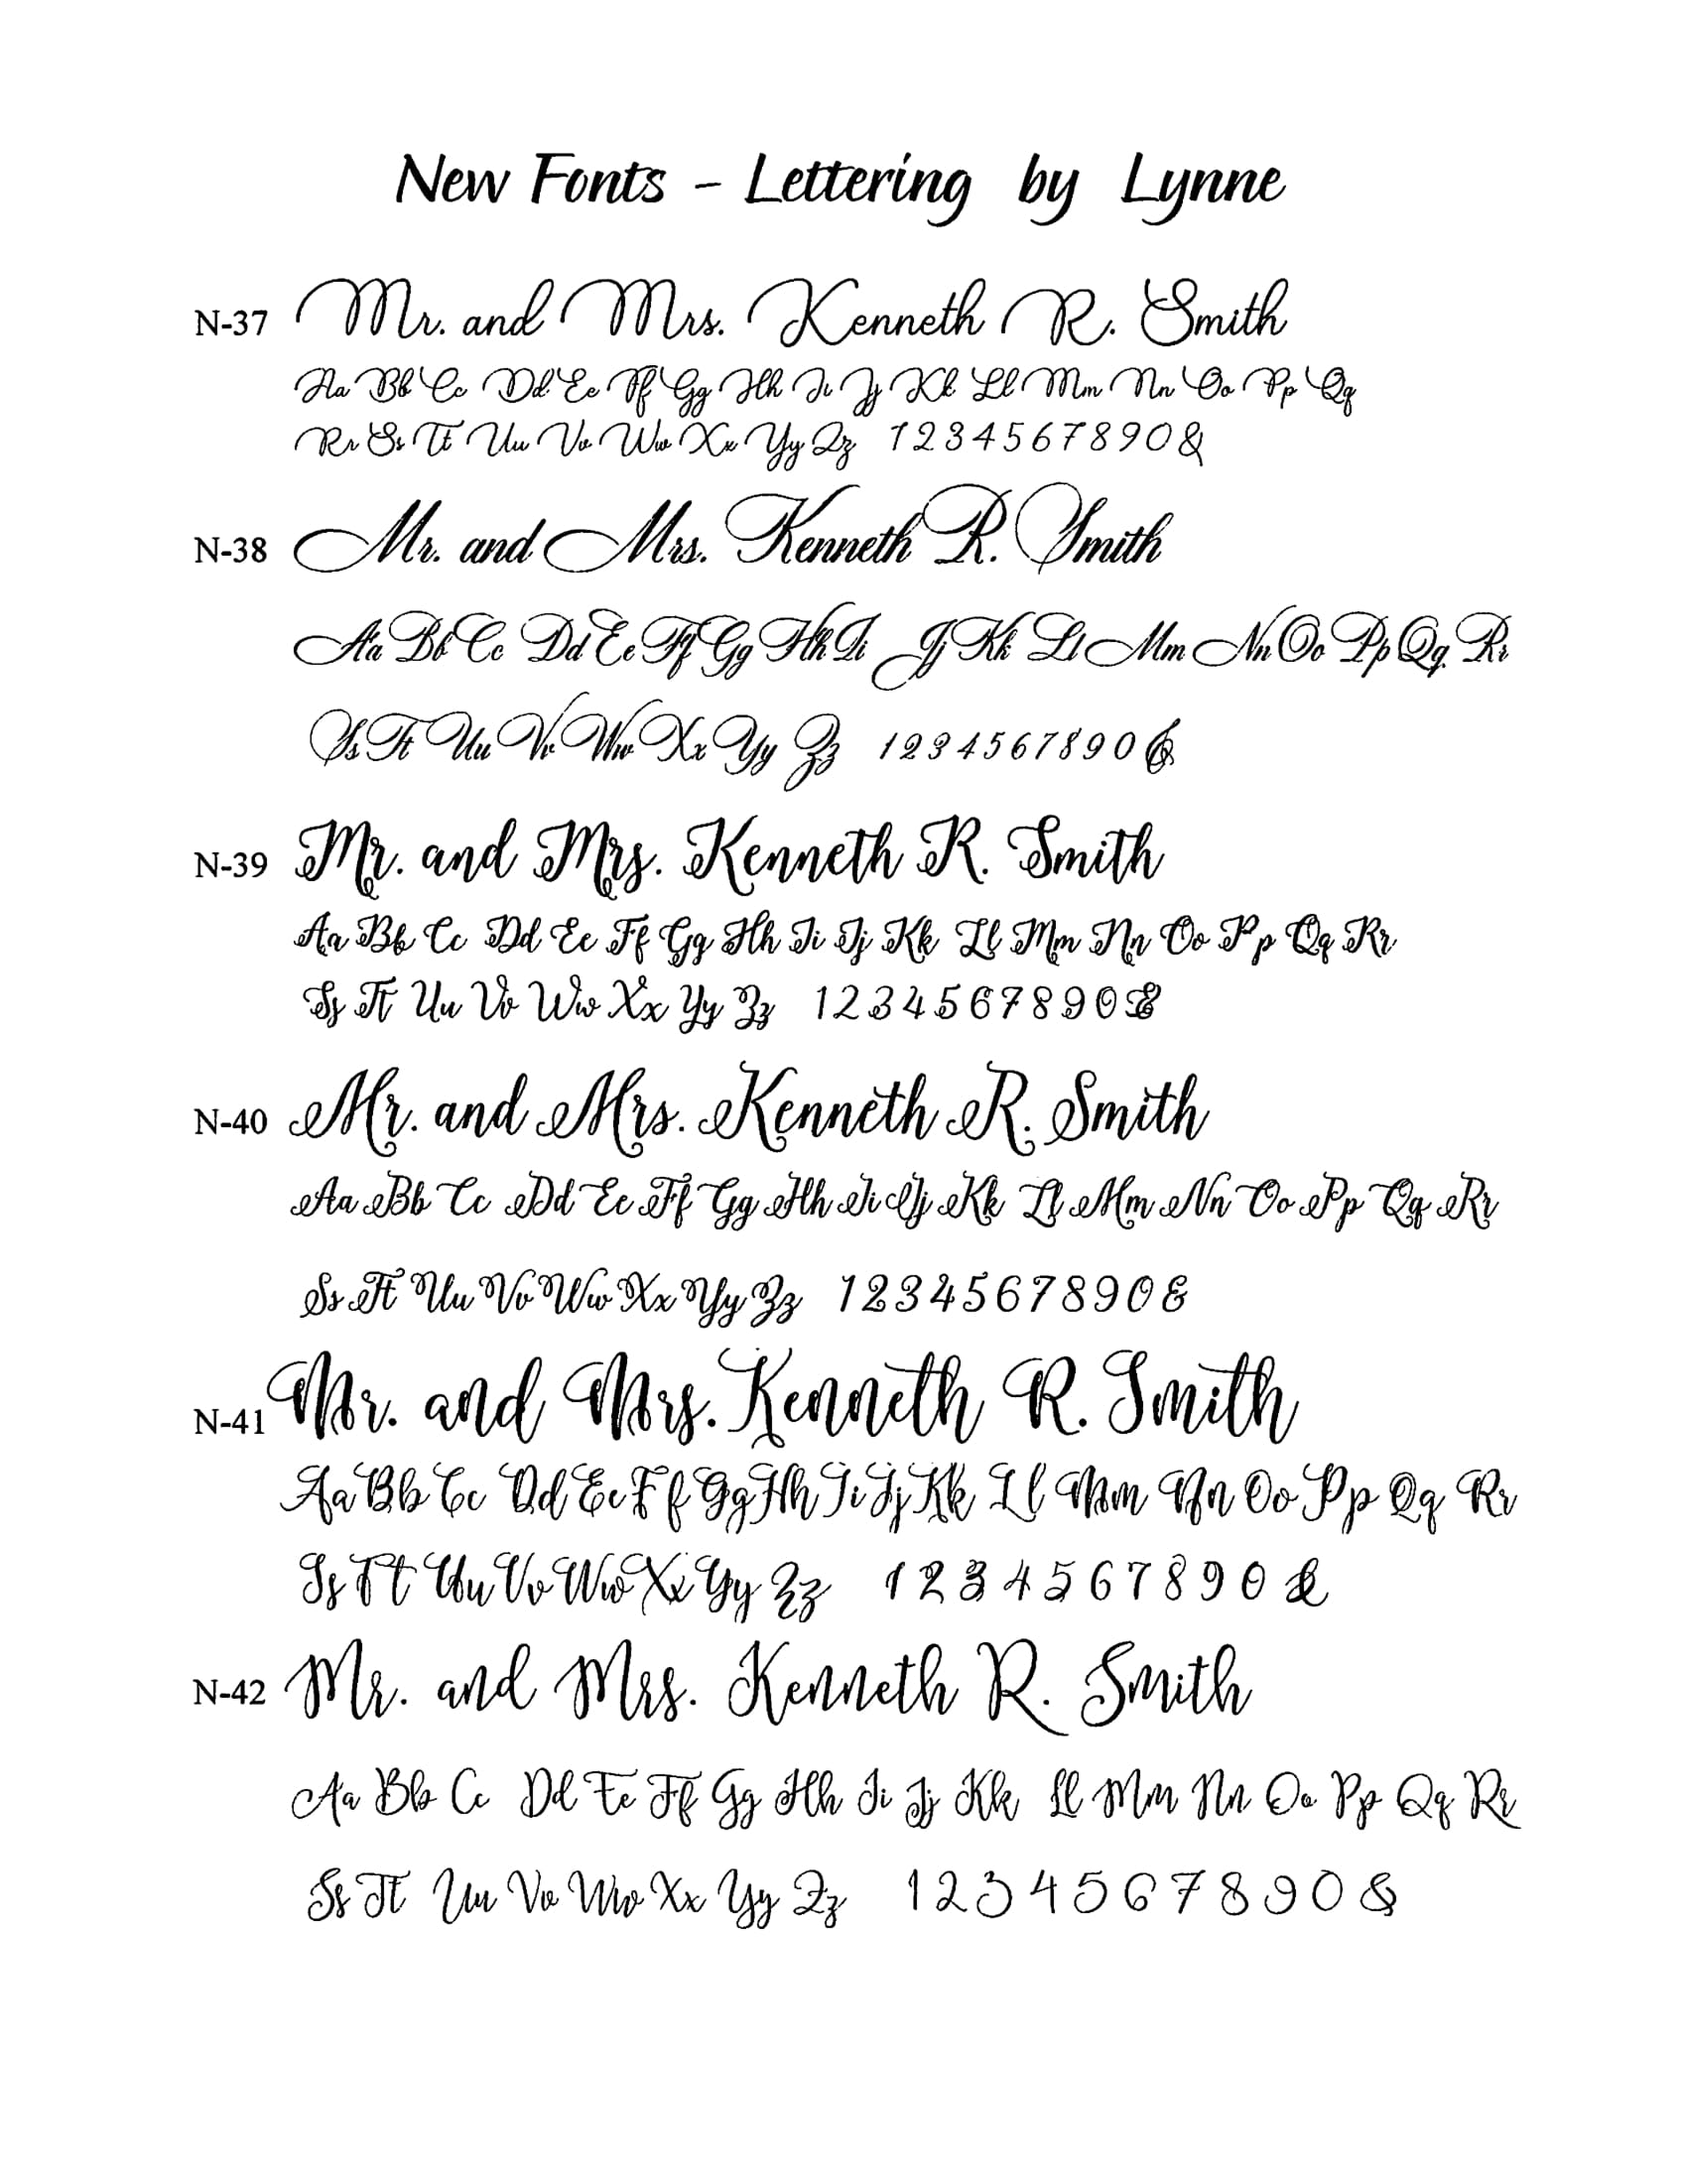 New Fonts - Lettering by Lynne
N-37 Mr. and Mrs. Kenneth R. Smith
Aa Bb Cc Dd Ee Ff Gg Hh Ii Jj Kk Ll Mm Nn Oo Pp Qq
Rr Ss Tt Uu Vv Ww Xx Yy Zz 1 2 3 4 5 6 7 8 9 0 &
N-38 Mr. and Mrs. Kenneth R. Smith
Aa Bb Cc Dd Ee Ff Gg Hh Ii Jj Kk Ll Mm Nn Oo Pp Qq Rr
Ss Tt Uu Vv Ww Xx Yy Zz 1 2 3 4 5 6 7 8 9 0 &
N-39 Mr. and Mrs. Kenneth R. Smith
Aa Bb Cc Dd Ee Ff Gg Hh Ii Jj Kk Ll Mm Nn Oo Pp Qq Rr
Ss Tt Uu Vv Ww Xx Yy Zz 1 2 3 4 5 6 7 8 9 0 &
N-40 Mr. and Mrs. Kenneth R. Smith
Aa Bb Cc Dd Ee Ff Gg Hh Ii Jj Kk Ll Mm Nn Oo Pp Qq Rr
Ss Tt Uu Vv Ww Xx Yy Zz 1 2 3 4 5 6 7 8 9 0 &
N-41 Mr. and Mrs. Kenneth R. Smith
Aa Bb Cc Dd Ee Ff Gg Hh Ii Jj Kk Ll Mm Nn Oo Pp Qq Rr
Ss Tt Uu Vv Ww Xx Yy Zz 1 2 3 4 5 6 7 8 9 0 &
N-42 Mr. and Mrs. Kenneth R. Smith
Aa Bb Cc Dd Ee Ff Gg Hh Ii Jj Kk Ll Mm Nn Oo Pp Qq Rr
Ss Tt Uu Vv Ww Xx Yy Zz 1 2 3 4 5 6 7 8 9 0 &